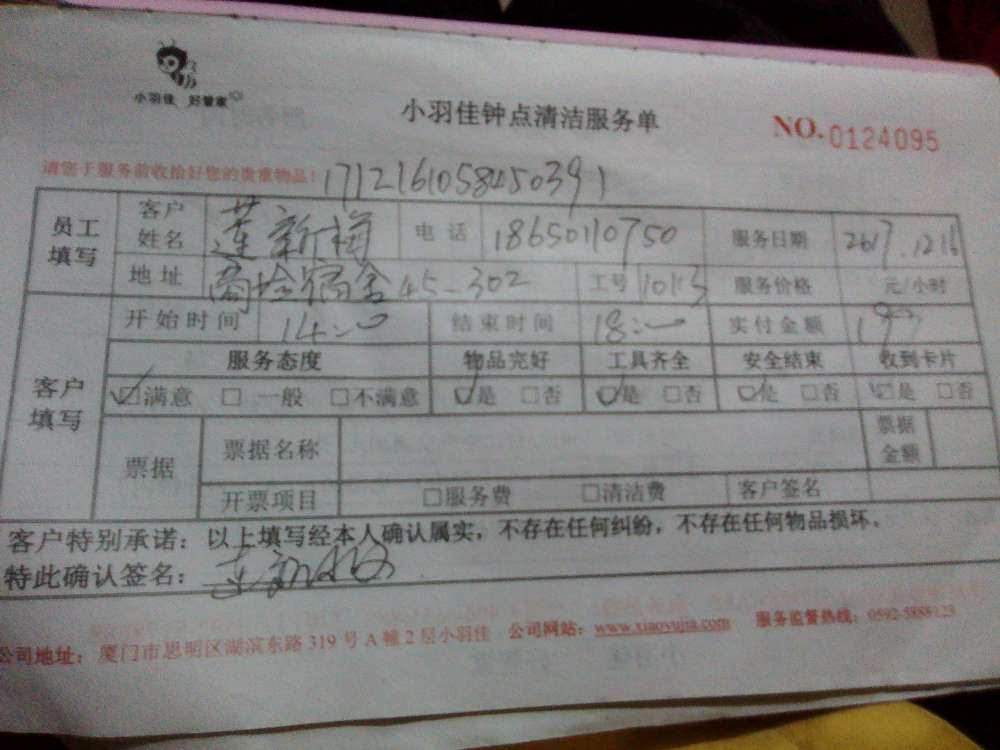 小羽佳 好管家
小羽佳钟点清洁服务单
NO.0124095
请您于服务前收拾好您的贵重物品！
员工填写 客户姓名 莲新梅 电话 18650110750 服务日期 2017.12.16
地址 宿舍45-302 工号 10113 服务价格 元/小时
客户填写 开始时间 14:00 结束时间 18:00 实付金额
服务态度 物品完好 工具齐全 安全结束 收到卡片
☑满意 □一般 □不满意 ☑是 □否 ☑是 □否 ☑是 □否 ☑是 □否
票据 票据名称 票据金额
开票项目 □服务费 □清洁费 客户签名
客户特别承诺：以上填写经本人确认属实，不存在任何纠纷，不存在任何物品损坏。
特此确认签名：
公司地址：厦门市思明区湖滨东路319号A幢2层小羽佳 公司网站：www.xiaoyujia.com 服务监督热线：0592-5888123